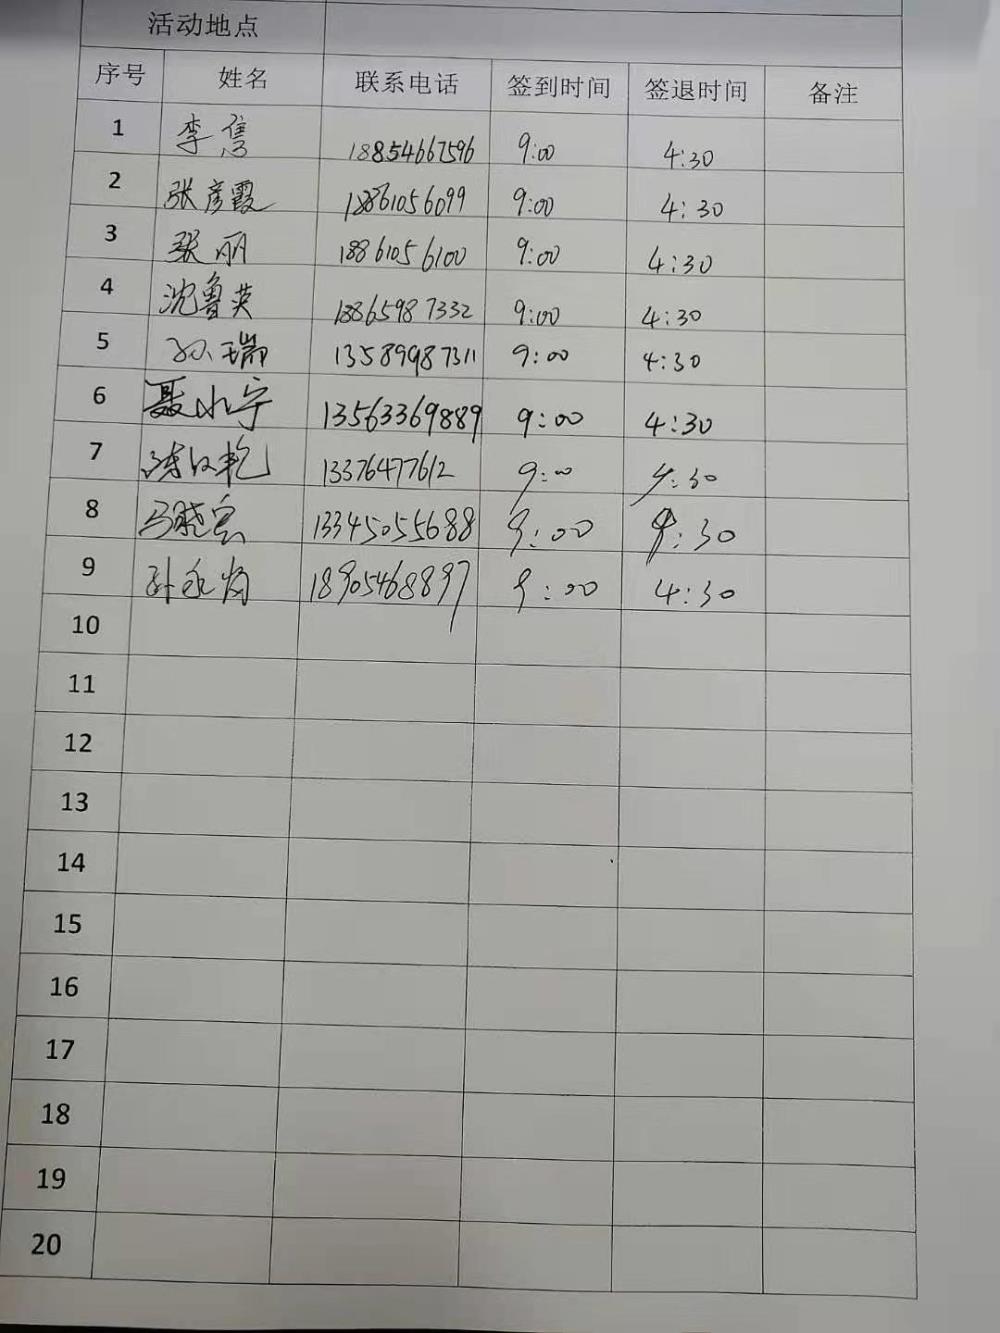 活动地点
序号 姓名 联系电话 签到时间 签退时间 备注
1 李隽 18854667596 9:00 4:30
2 张彦霞 18861056099 9:00 4:30
3 张丽 18861056100 9:00 4:30
4 沈鲁英 18865987332 9:00 4:30
5 孙瑞 13589987311 9:00 4:30
6 聂小宁 13563369889 9:00 4:30
7 13376477612 9:00 4:30
8 马晓 13345055688 9:00 4:30
9 孙永 18905468897 9:00 4:30
10
11
12
13
14
15
16
17
18
19
20